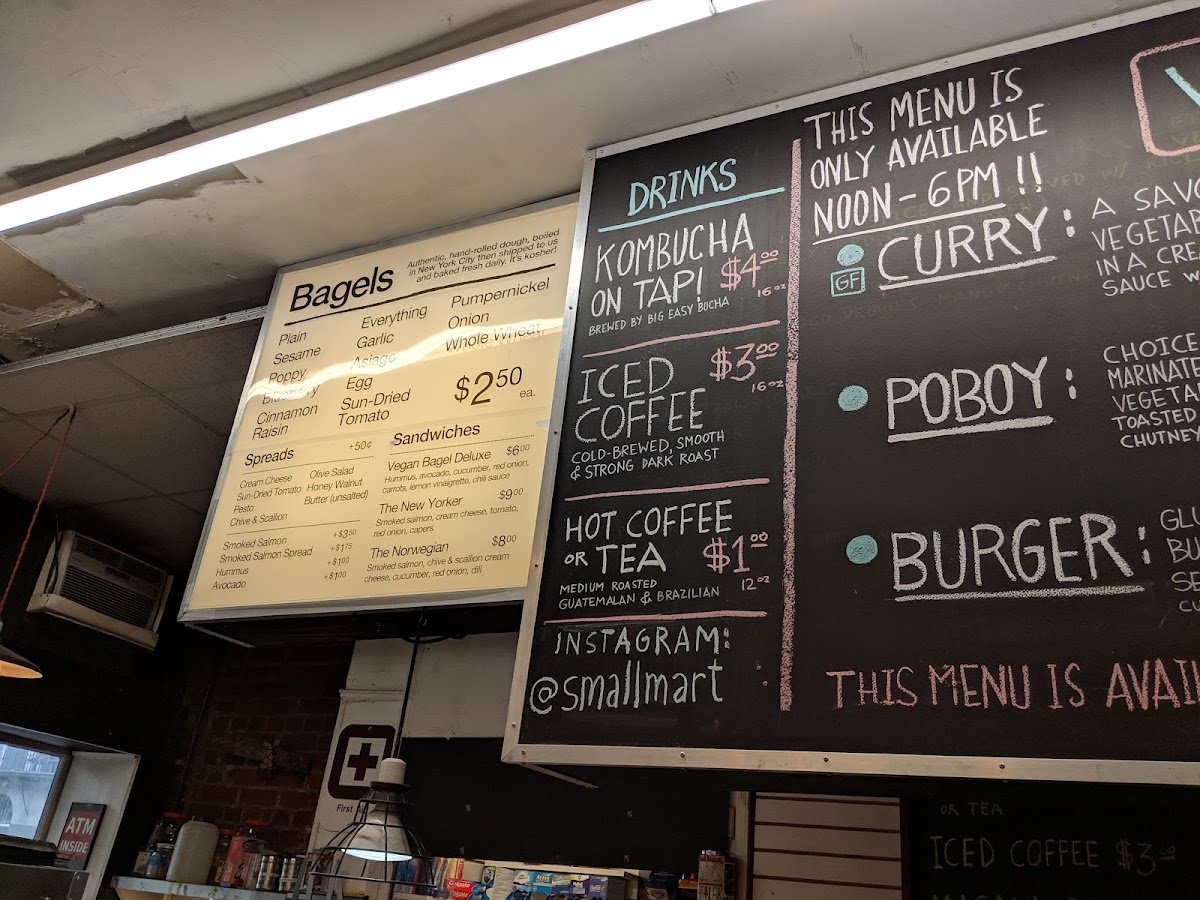 Bagels
Authentic, hand-rolled dough, boiled
in New York City then shipped to us
and baked fresh daily. It's kosher!
Plain
Sesame
Poppy
Blueberry
Cinnamon
Raisin
Everything
Garlic
Asiago
Egg
Sun-Dried
Tomato
Pumpernickel
Onion
Whole Wheat
$2.50
ea.
Spreads +50¢
Cream Cheese
Sun-Dried Tomato
Pesto
Chive & Scallion
Olive Salad
Honey Walnut
Butter (unsalted)
Smoked Salmon +$3.50
Smoked Salmon Spread +$1.75
Hummus +$1.00
Avocado +$1.00
Sandwiches
Vegan Bagel Deluxe $6.00
Hummus, avocado, cucumber, red onion,
carrots, lemon vinaigrette, chili sauce
The New Yorker $9.00
Smoked salmon, cream cheese, tomato,
red onion, capers
The Norwegian $8.00
Smoked salmon, chive & scallion cream
cheese, cucumber, red onion, dill
DRINKS
KOMBUCHA
ON TAP! $4.00
16 oz
BREWED BY BIG EASY BUCHA
ICED $3.00
16 oz
COFFEE
COLD-BREWED, SMOOTH
& STRONG DARK ROAST
HOT COFFEE
OR TEA $1.00
12 oz
MEDIUM ROASTED
GUATEMALAN & BRAZILIAN
INSTAGRAM:
@smallmart
THIS MENU IS
ONLY AVAILABLE
NOON - 6PM !!
GF
CURRY:
A SAVO
VEGETAB
IN A CREA
SAUCE W
POBOY:
CHOICE
MARINATE
VEGETA
TOASTED
CHUTNEY
BURGER:
GLU
BU
SE
CU
THIS MENU IS AVAI
First A
ATM
INSIDE
Colgate
Colgate
OR TEA
ICED COFFEE $3